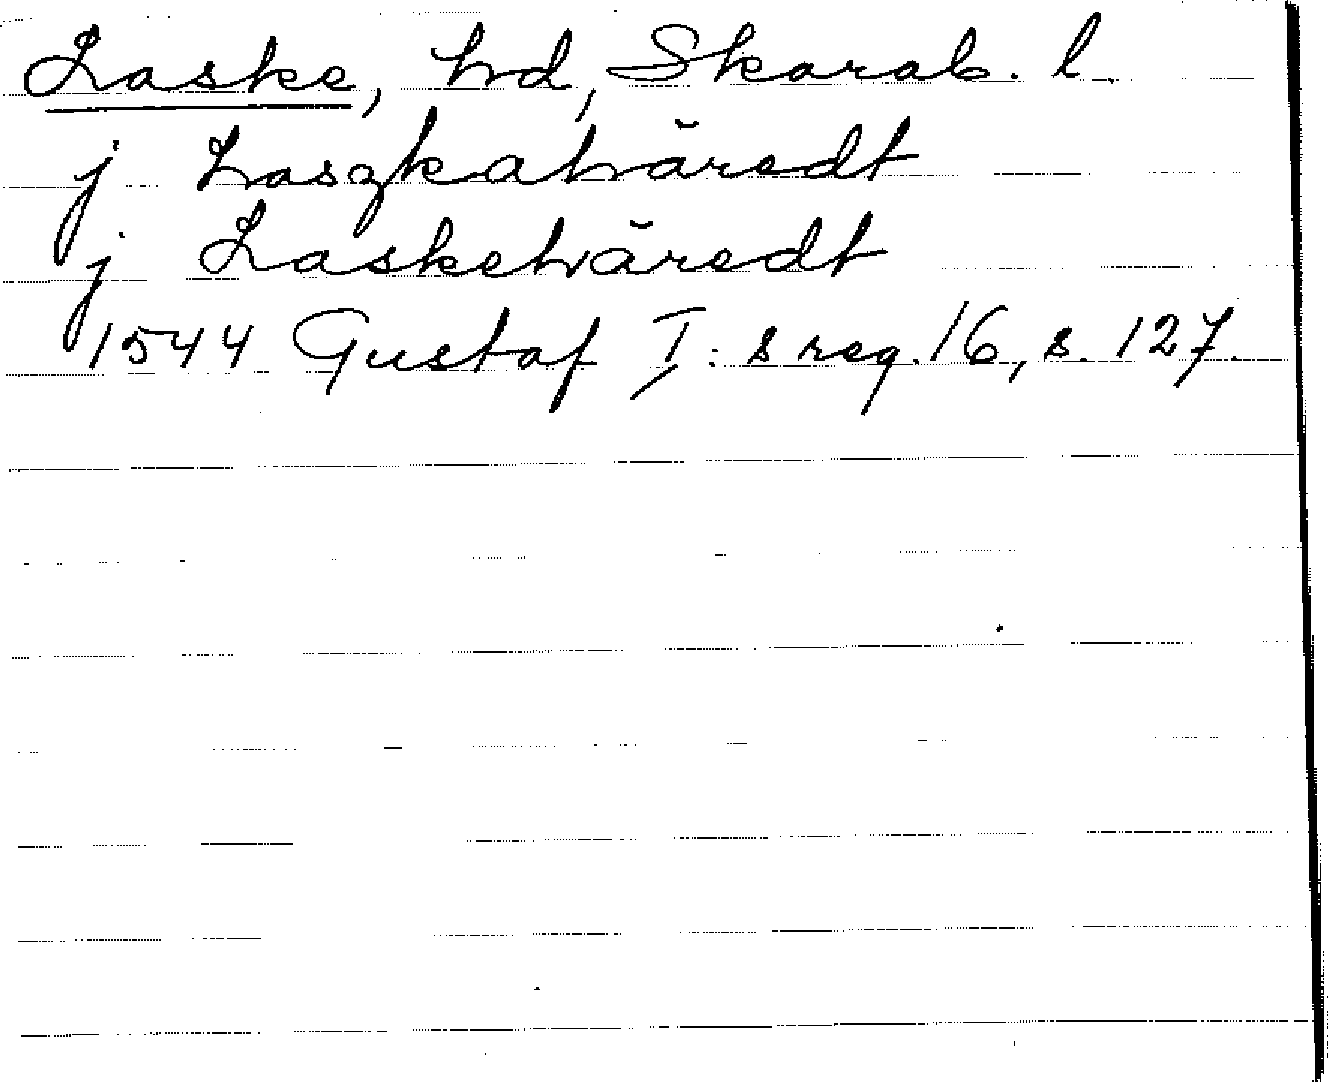 Laske, hd, Skarab. l.
j Laszkahäredt
j Laskehäredt
1544 Gustaf I:s reg. 16, s. 127.